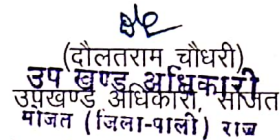 (दौलतराम चौधरी)
उप खण्ड अधिकारी
उपखण्ड अधिकारी, सोजत
सोजत (जिला-पाली) राज